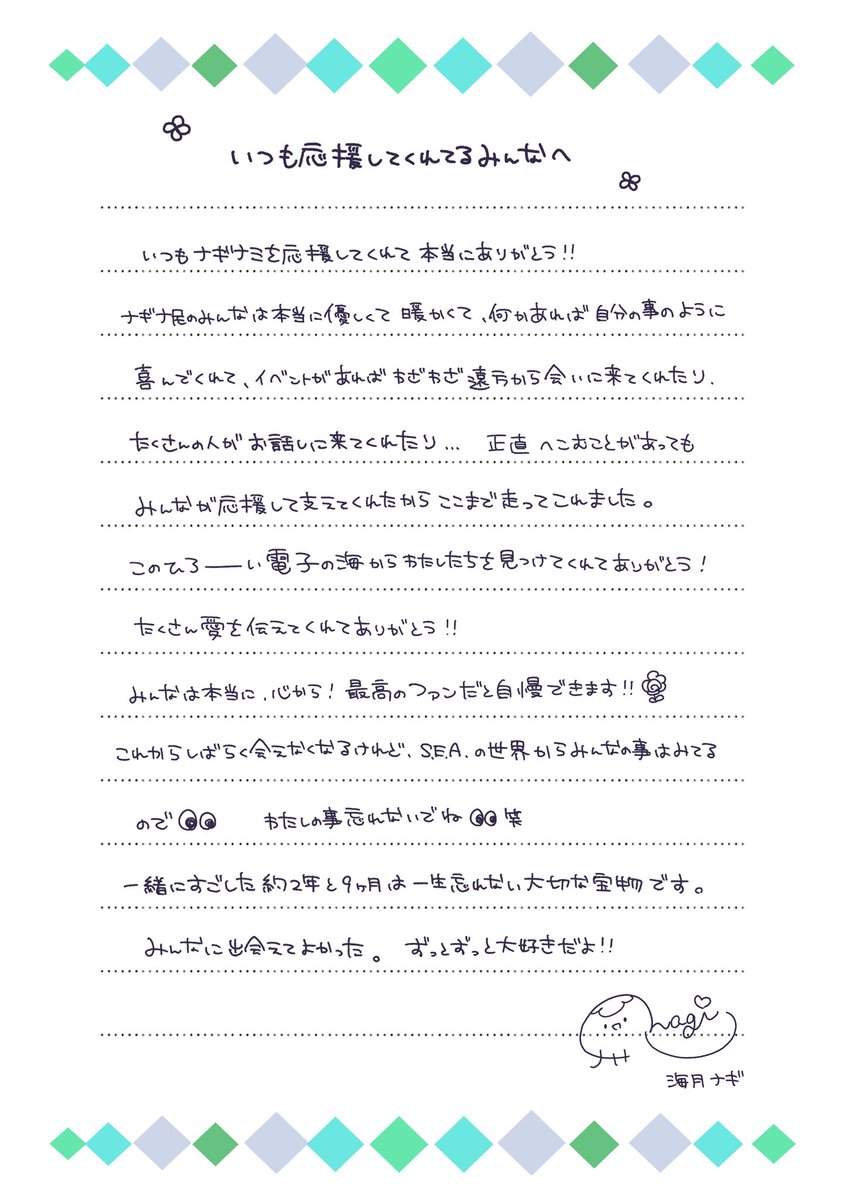 いつも応援してくれてるみんなへ
いつもナギナミを応援してくれて 本当にありがとう!!
ナギナ民のみんなは本当に優しくて 暖かくて、何かあれば 自分の事のように
喜んでくれて、イベントがあれば わざわざ 遠方から会いに来てくれたり、
たくさんの人が お話しに来てくれたり... 正直 へこむことがあっても
みんなが応援して支えてくれたから ここまで走ってこれました。
このひろーーい電子の海からわたしたちを見つけてくれてありがとう!
たくさん愛を伝えてくれてありがとう!!
みんなは本当に、心から! 最高のファンだと自慢できます!!
これからしばらく会えなくなるけれど、S.E.A.の世界からみんなの事はみてる
ので👀 わたしの事忘れないでね👀笑
一緒にすごした約2年と9ヶ月は一生忘れない大切な宝物です。
みんなに出会えてよかった。 ずっとずっと大好きだよ!!
nagi♡
海月ナギ